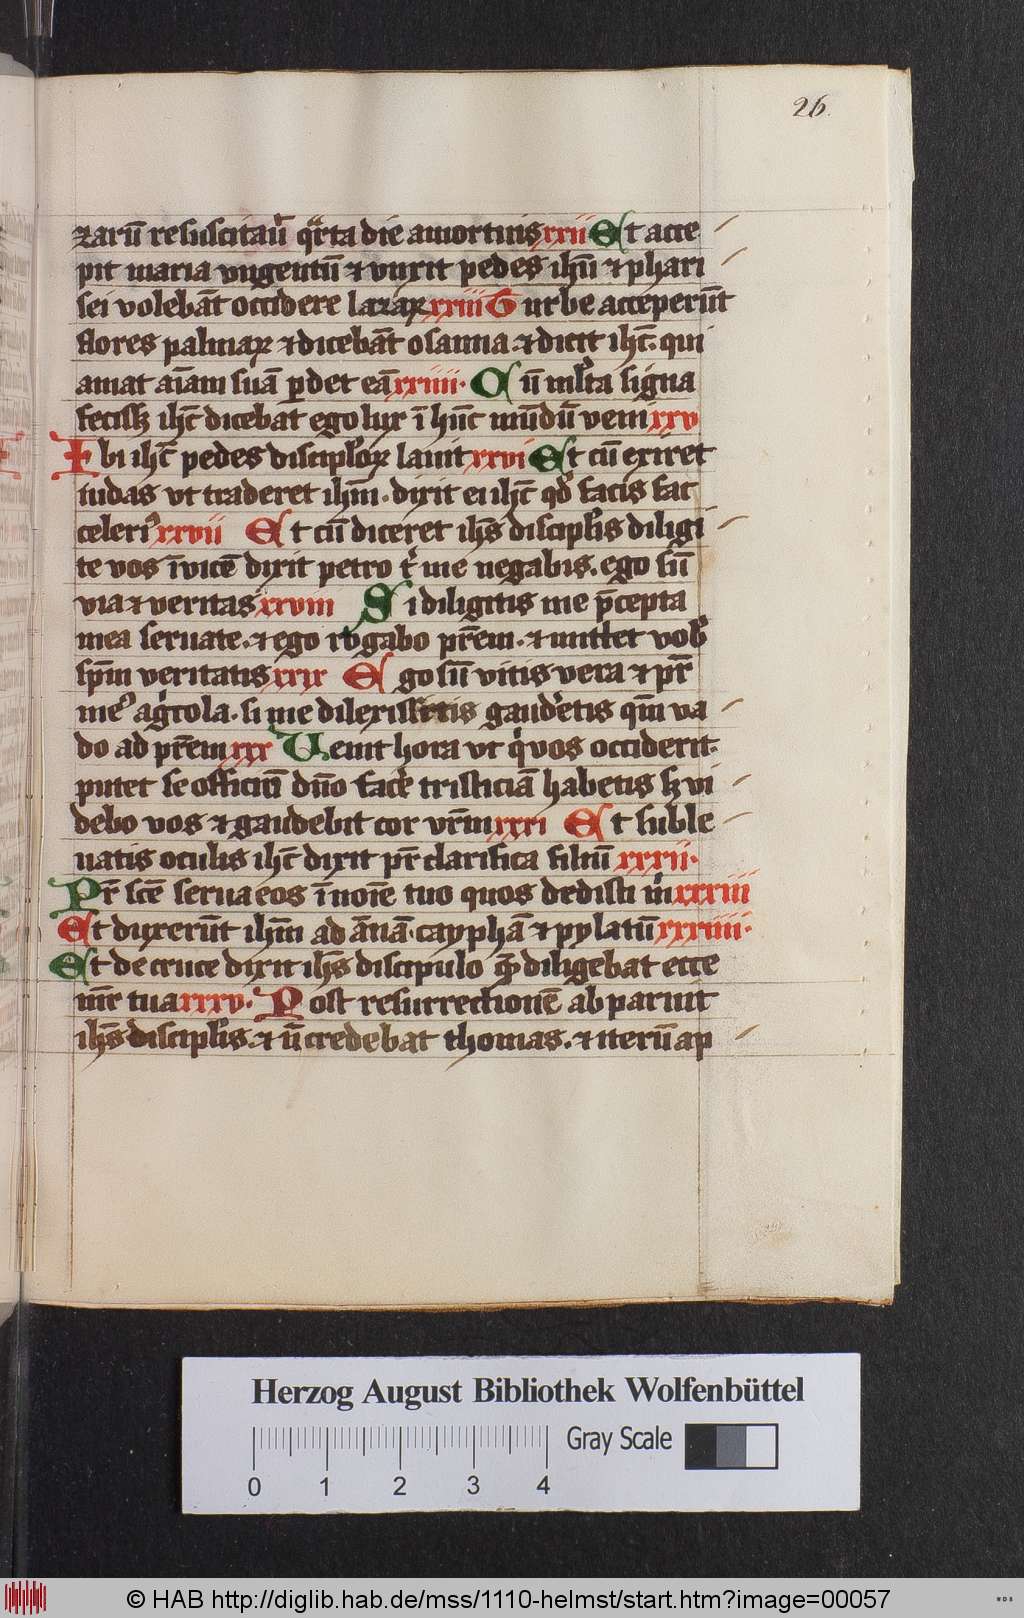 26.
zarū resuscitau̅ qrta die amortuis xxii Et acce
pit maria vngentū ⁊ vnxit pedes ihū ⁊ phari
sei volebāt occidere lazaꝝ xxiii turbe acceperūt
flores palmaꝝ ⁊ dicebāt osanna ⁊ dicit ihc̅. qui
amat aīam suā ꝑdet eā xxiiii. Cū mlta signa
fecisꝫ ihc̅ dicebat ego lux ī hūc mūdū veni xxv
Ibi ihc̅ pedes disciploꝝ lauit xxvi Et cū exiret
iudas vt traderet ihm̅. dixit ei ihc̅ qd̕ facis fac
celeriꝰ xxvii Et cū diceret ihs̅ discipl̕is diligi
te vos īvicē dixit petro t̕ me negabis. ego sū
via ⁊ veritas xxviii Si diligitis me p̄cepta
mea seruate. ⁊ ego rogabo pr̅em. ⁊ mittet vob̕
sp̅m veritatis xxix Ego sū vitis vera ⁊ pr̅
meꝰ agͥcola. si me dilexissetis gaud̕etis qm̅ va
do ad pr̅em xxx Venit hora vt qͥ vos occiderit.
putet se officiū dn̅o fac̕e tristiciā habetis sꝫ vi
debo vos ⁊ gaudebit cor vr̅m xxxi Et suble
uatis oculis ihc̅ dixit pr̅ clarifica filiū xxxii.
Pr̅ sc̅e serua eos ī noīe tuo quos dedisti mͥ xxxiii
Et duxerūt ihm̅ ad ānā. cayphā ⁊ pylatū xxxiiii.
Et de cruce dixit ihs̅ discipulo quē diligebat ecce
mr̅ tua xxxv. Post resurrectionē abparuit
ihs̅ discipl̕is. ⁊ n̄ credebat thomas. ⁊ iterū ap
Herzog August Bibliothek Wolfenbüttel
0 1 2 3 4 Gray Scale
© HAB http://diglib.hab.de/mss/1110-helmst/start.htm?image=00057